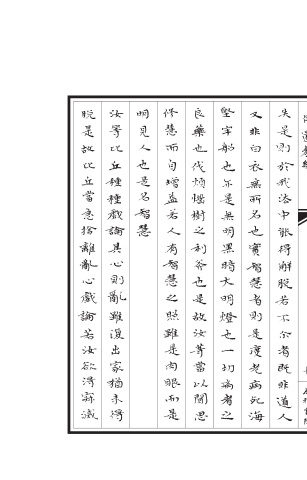 失是則於我法中能得解脫若不爾者既非道人
又非白衣無所名也實智慧者則是度老病死海
堅牢船也亦是無明黑暗大明燈也一切病者之
良藥也伐煩惱樹之利斧也是故汝等當以聞思
修慧而自增益若人有智慧之照雖是肉眼而是
明見人也是名智慧
汝等比丘種種戲論其心則亂雖復出家猶未得
脫是故比丘當急捨離亂心戲論若汝欲得寂滅